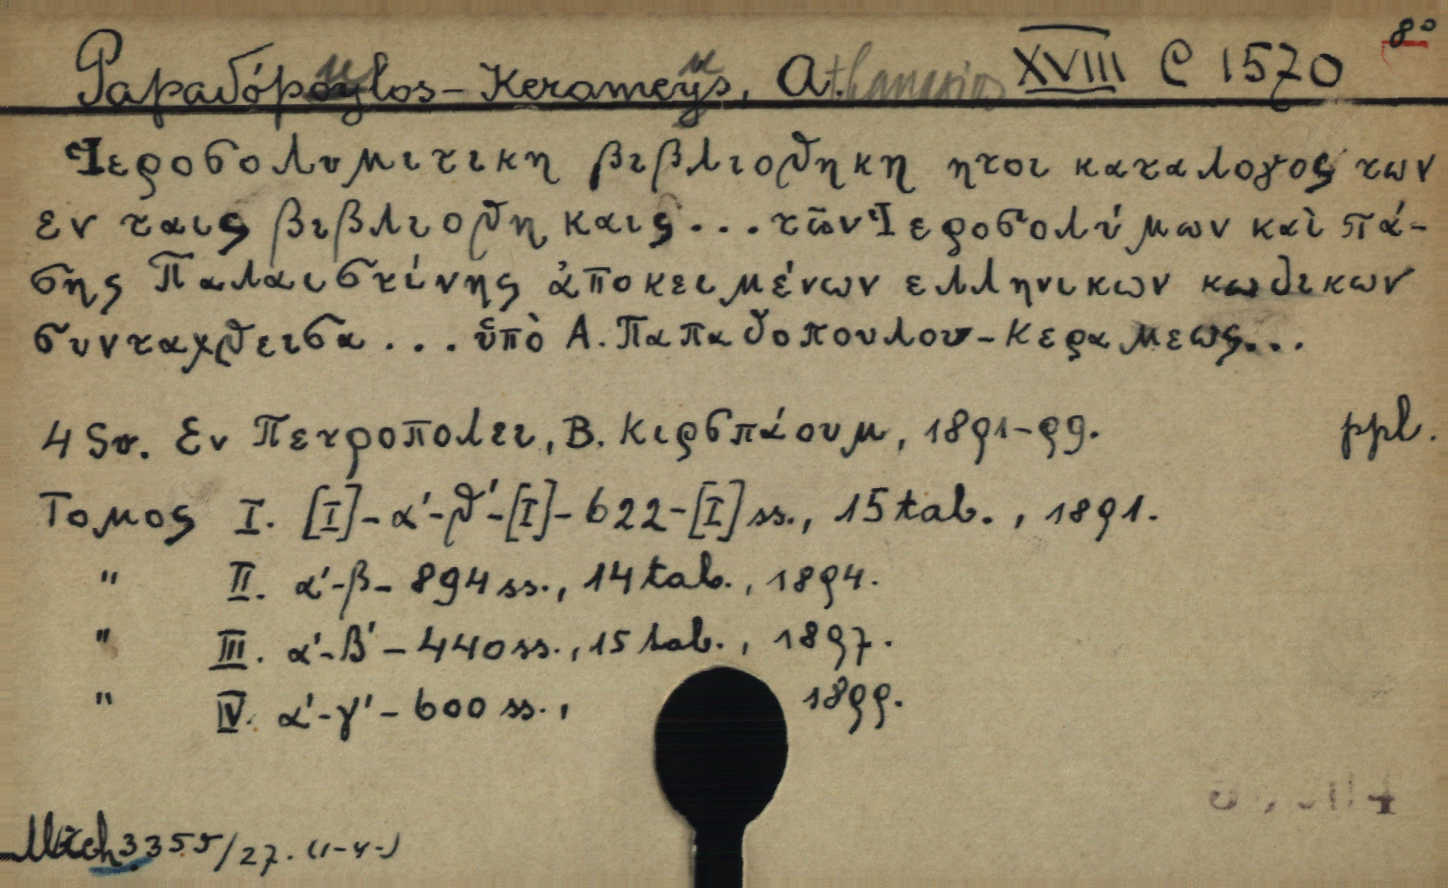 Papadópoylos-Kerameys, Athanasios XVIII C 1570 8°
Ἱεροσολυμιτικη βιβλιοθηκη ητοι καταλογος των
εν ταις βιβλιοθηκαις ... τῶν Ἱεροσολύμων καὶ πά-
σης Παλαιστίνης ἀποκειμένων ελληνικων κωδικων
συνταχθεισα ... ὑπὸ Α. Παπαδοπουλου-Κεραμεως...
4 Sv. Εν Πετροπολει, Β. Κιρσπάουμ, 1891-99. ppl.
Τομος I. [I]-α'-θ'-[I]-622-[I] ss., 15 tab., 1891.
" II. α'-β- 894 ss., 14 tab., 1894.
" III. α'-β'- 440 ss., 15 tab., 1897.
" IV. α'-γ'- 600 ss., 1899.
3355/27. (1-4-)